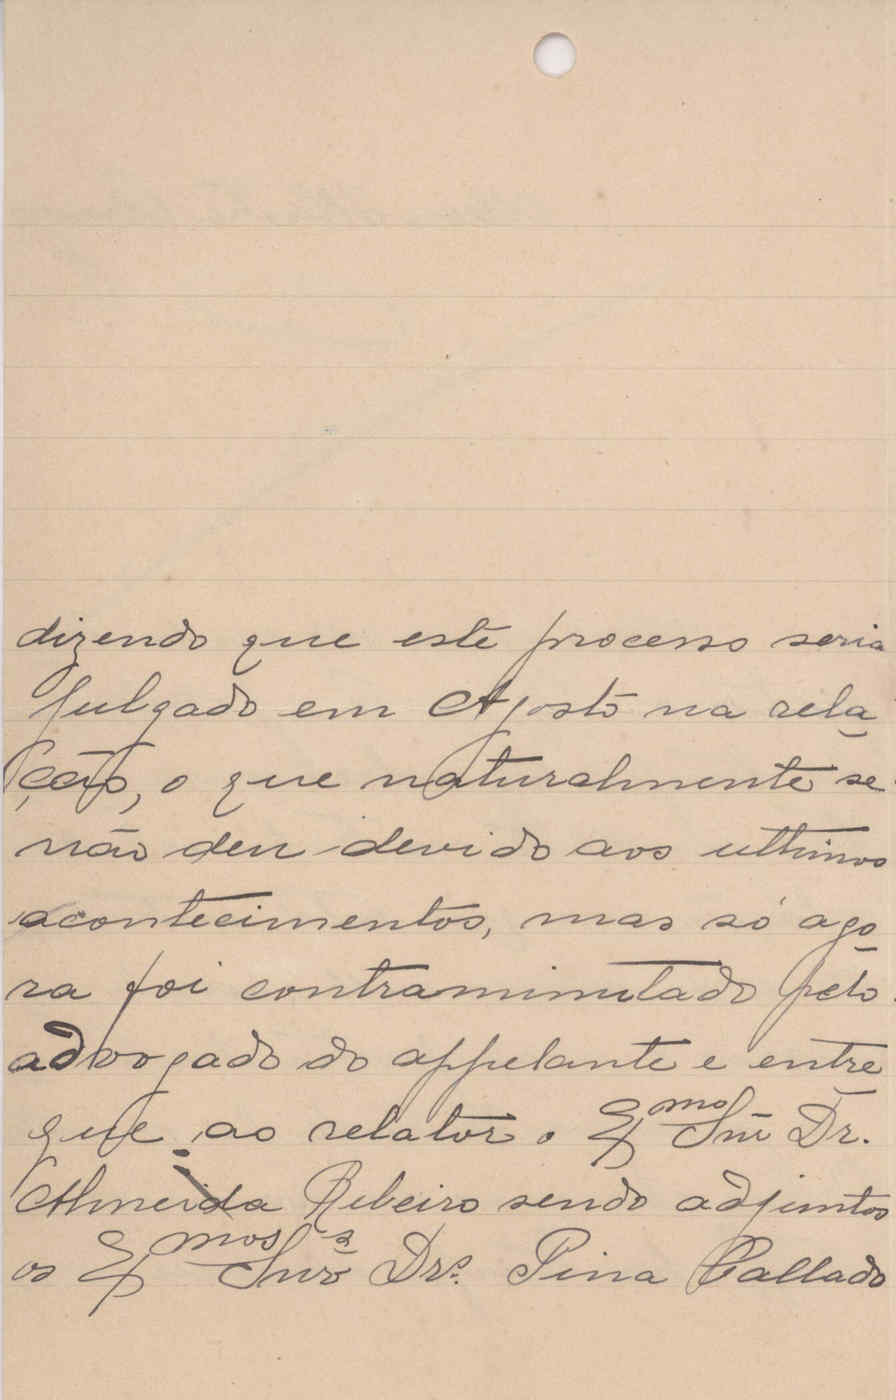 dizendo que este processo seria
julgado em Agosto na rela
ção, o que naturalmente se
não deu devido aos ultimos
acontecimentos, mas só ago
ra foi contraminutado pelo
advogado do appelante e entre
gue ao relator o Exmo Snr Dr.
Almeida Ribeiro sendo adjuntos
os Exmos Snrs Drs. Pina Callado